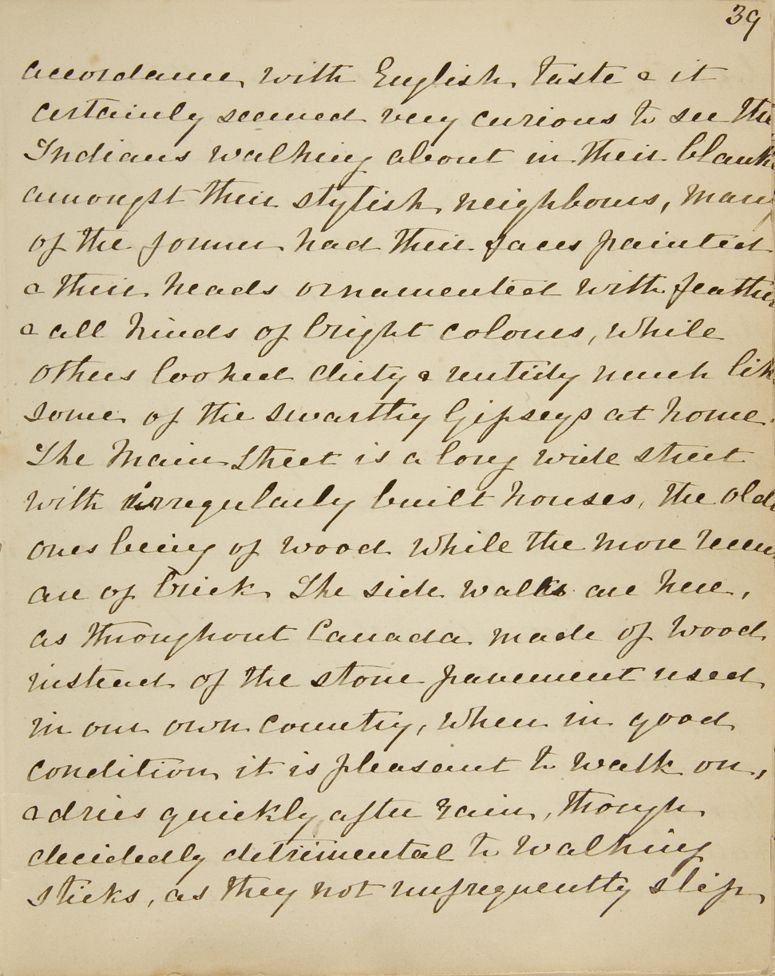 39
accordance with English taste & it
certainly seemed very curious to see the
Indians walking about in their blank
amongst their stylish neighbours, many
of the former had their faces painted
& their heads ornamented with feather
& all kinds of bright colours, while
others looked dirty & untidy much lik
some of the swarthy Gipseys at home.
The Main Street is a long wide street
with irregularly built houses, the olde
ones being of wood while the more recen
are of brick The side walks are here,
as throughout Canada made of wood
instead of the stone pavement used
in our own country, when in good
condition it is pleasant to walk on,
& dries quickly after rain, though
decidedly detrimental to walking
sticks, as they not unfrequently slip